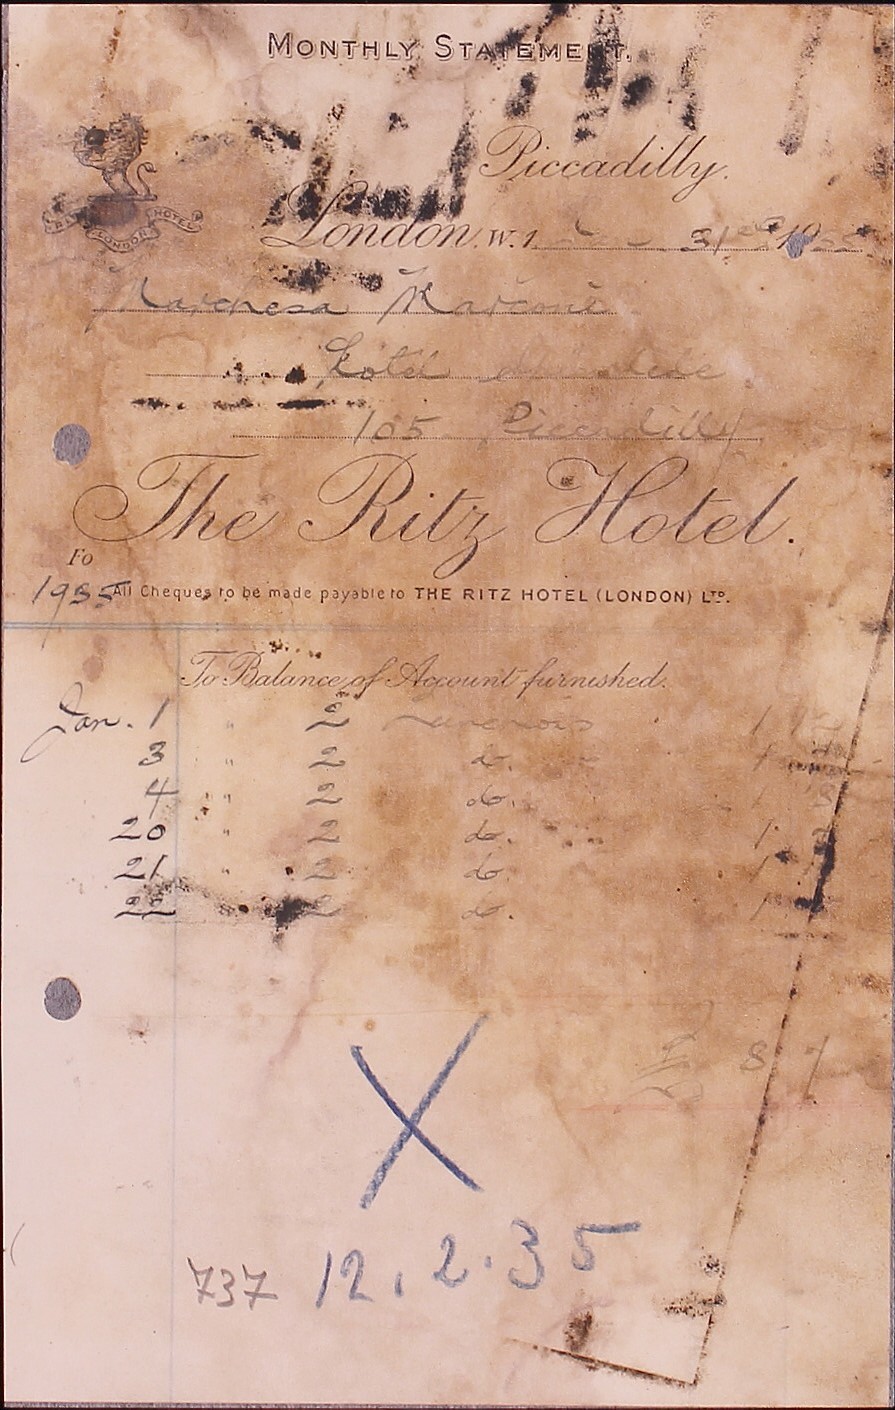 MONTHLY STATEMENT.
Piccadilly.
RITZ HOTEL
LONDON
London, W.1. 31 19
Marchesa Marconi
Hotel
105 Piccadilly
The Ritz Hotel.
Fo
1935 All Cheques to be made payable to THE RITZ HOTEL (LONDON) LTD.
To Balance of Account furnished.
Jan. 1 " 2 1
3 " 2 do. 1
4 " 2 do. 1
20 " 2 do. 1
21 " 2 do. 1
22 2 do. 1
£ 8
X
737 12.2.35